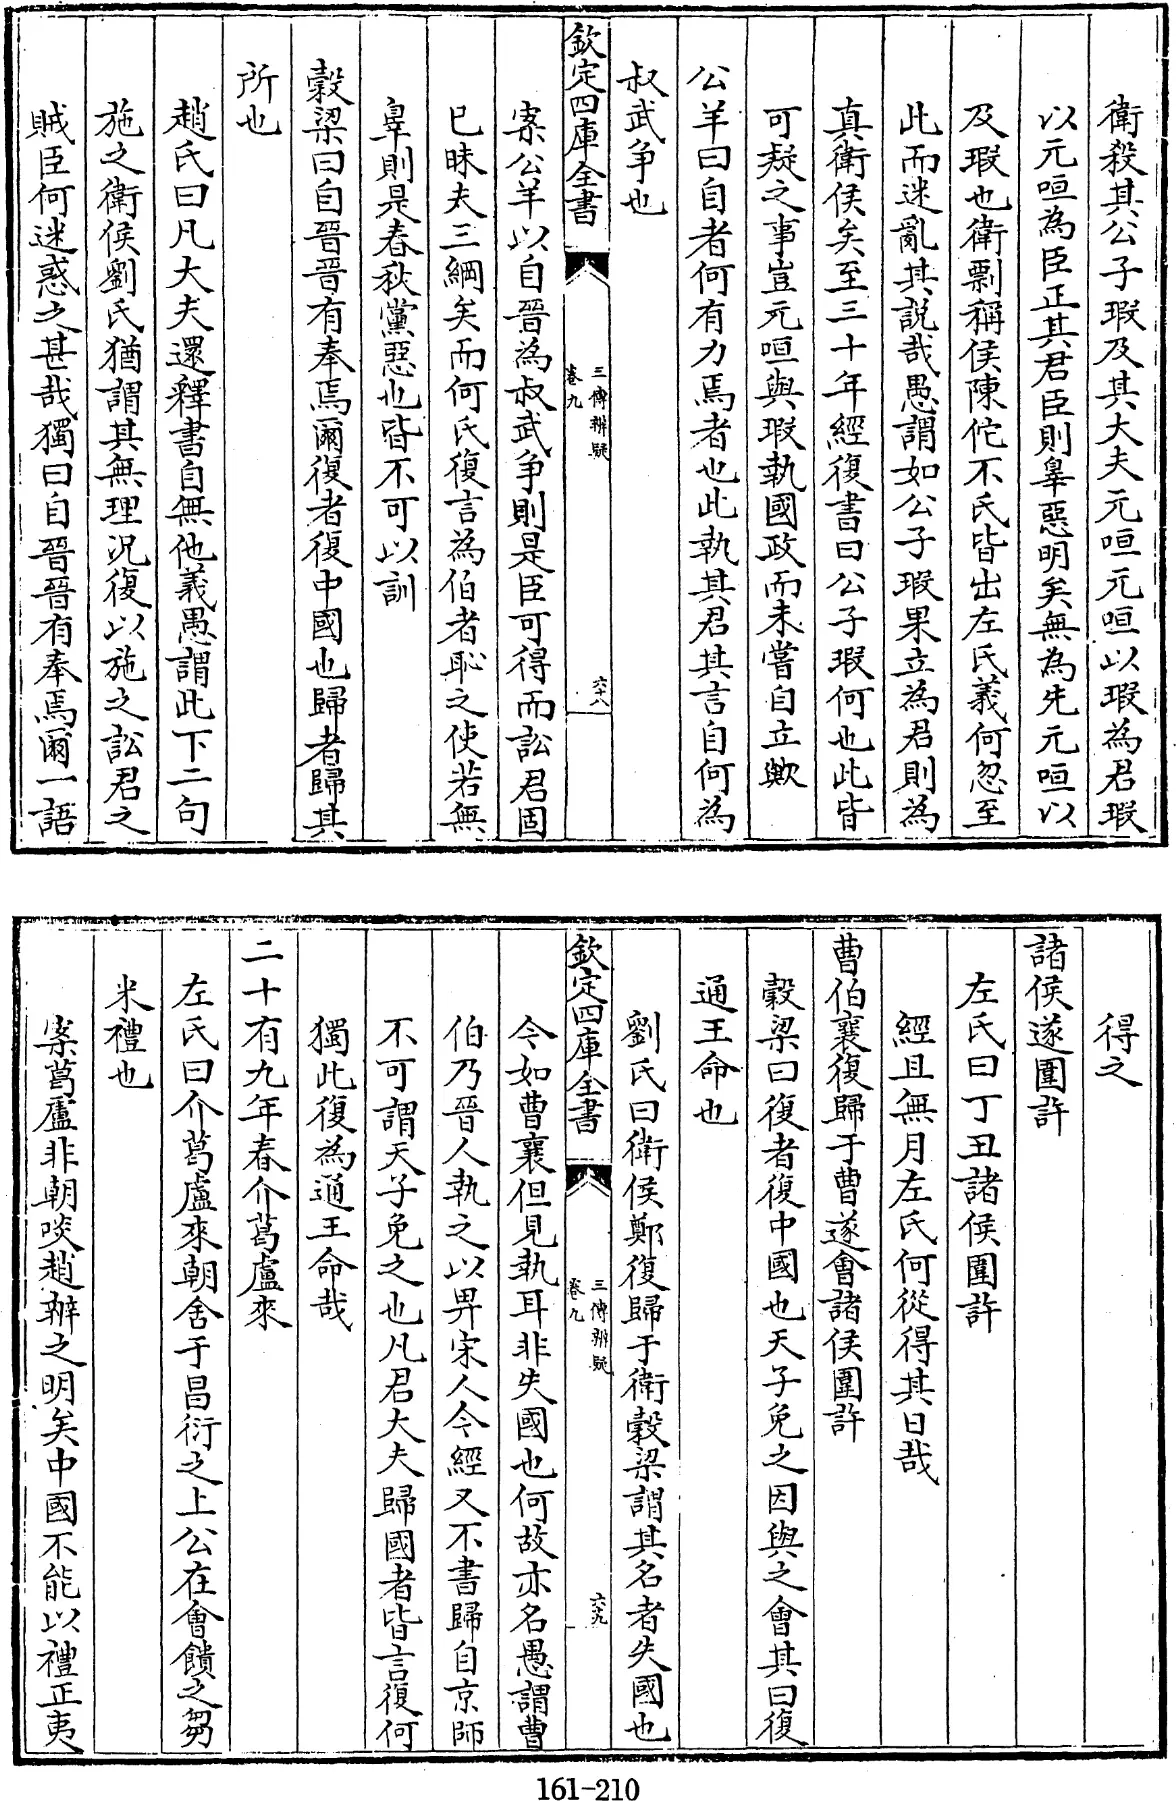 衛殺其公子瑕及其大夫元咺元咺以瑕為君瑕
以元咺為臣正其君臣則辠惡明矣無為先元咺以
及瑕也衛剽稱侯陳佗不氏皆出左氏義何忽至
此而迷亂其説哉愚謂如公子瑕果立為君則為
真衛侯矣至三十年經復書曰公子瑕何也此皆
可疑之事豈元咺與瑕執國政而未嘗自立歟
公羊曰自者何有力焉者也此執其君其言自何為
叔武争也
欽定四庫全書
三傳辨疑
卷九
六十八
案公羊以自晉為叔武争則是臣可得而訟君固
已昧夫三綱矣而何氏復言為伯者恥之使若無
辠則是春秋黨惡也皆不可以訓
穀梁曰自晉晉有奉焉爾復者復中國也歸者歸其
所也
趙氏曰凡大夫還釋書自無他義愚謂此下二句
施之衛侯劉氏猶謂其無理況復以施之訟君之
賊臣何迷惑之甚哉獨曰自晉晉有奉焉爾一語
得之
諸侯遂圍許
左氏曰丁丑諸侯圍許
經且無月左氏何從得其日哉
曹伯襄復歸于曹遂會諸侯圍許
穀梁曰復者復中國也天子免之因與之會其曰復
通王命也
劉氏曰衛侯鄭復歸于衛穀梁謂其名者失國也
欽定四庫全書
三傳辨疑
卷九
六十九
今如曹襄但見執耳非失國也何故亦名愚謂曹
伯乃晉人執之以畀宋人今經又不書歸自京師
不可謂天子免之也凡君大夫歸國者皆言復何
獨此復為通王命哉
二十有九年春介葛盧來
左氏曰介葛盧來朝舍于昌衍之上公在會饋之芻
米禮也
案葛盧非朝啖趙辨之明矣中國不能以禮正夷
161-210